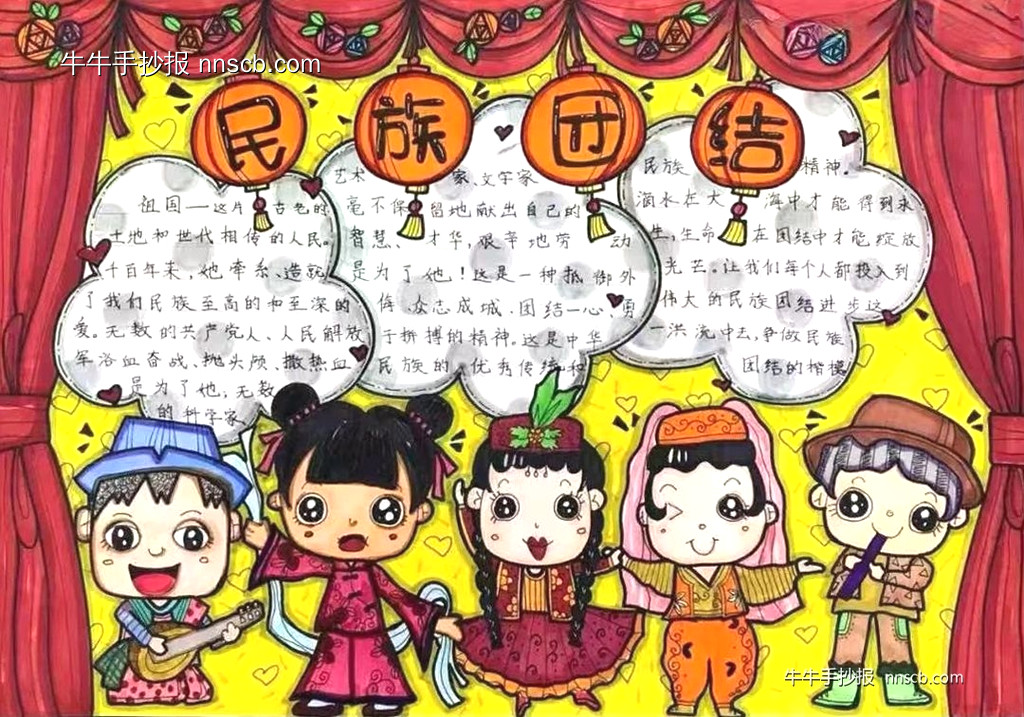 牛牛手抄报 nnscb.com
民族团结
祖国一这片古老的
土地和世代相传的人民。
千百年来,她牵系、造就
了我们民族至高的和至深的
爱。无数的共产党人、人民解放
军浴血奋战、抛头颅、撒热血
是为了她,无数
的科学家
艺术家、文学家
毫不保留地献出自己的
智慧、才华,艰辛地劳动
是为了她!这是一种抵御外
侮、众志成城、团结一心、勇
于拼搏的精神。这是中华
民族的优秀传统和
民族精神。
滴水在大海中才能得到永
生,生命在团结中才能绽放
光芒。让我们每个人都投入到
伟大的民族团结进步这
一洪流中去,争做民族
团结的楷模
牛牛手抄报 nnscb.com